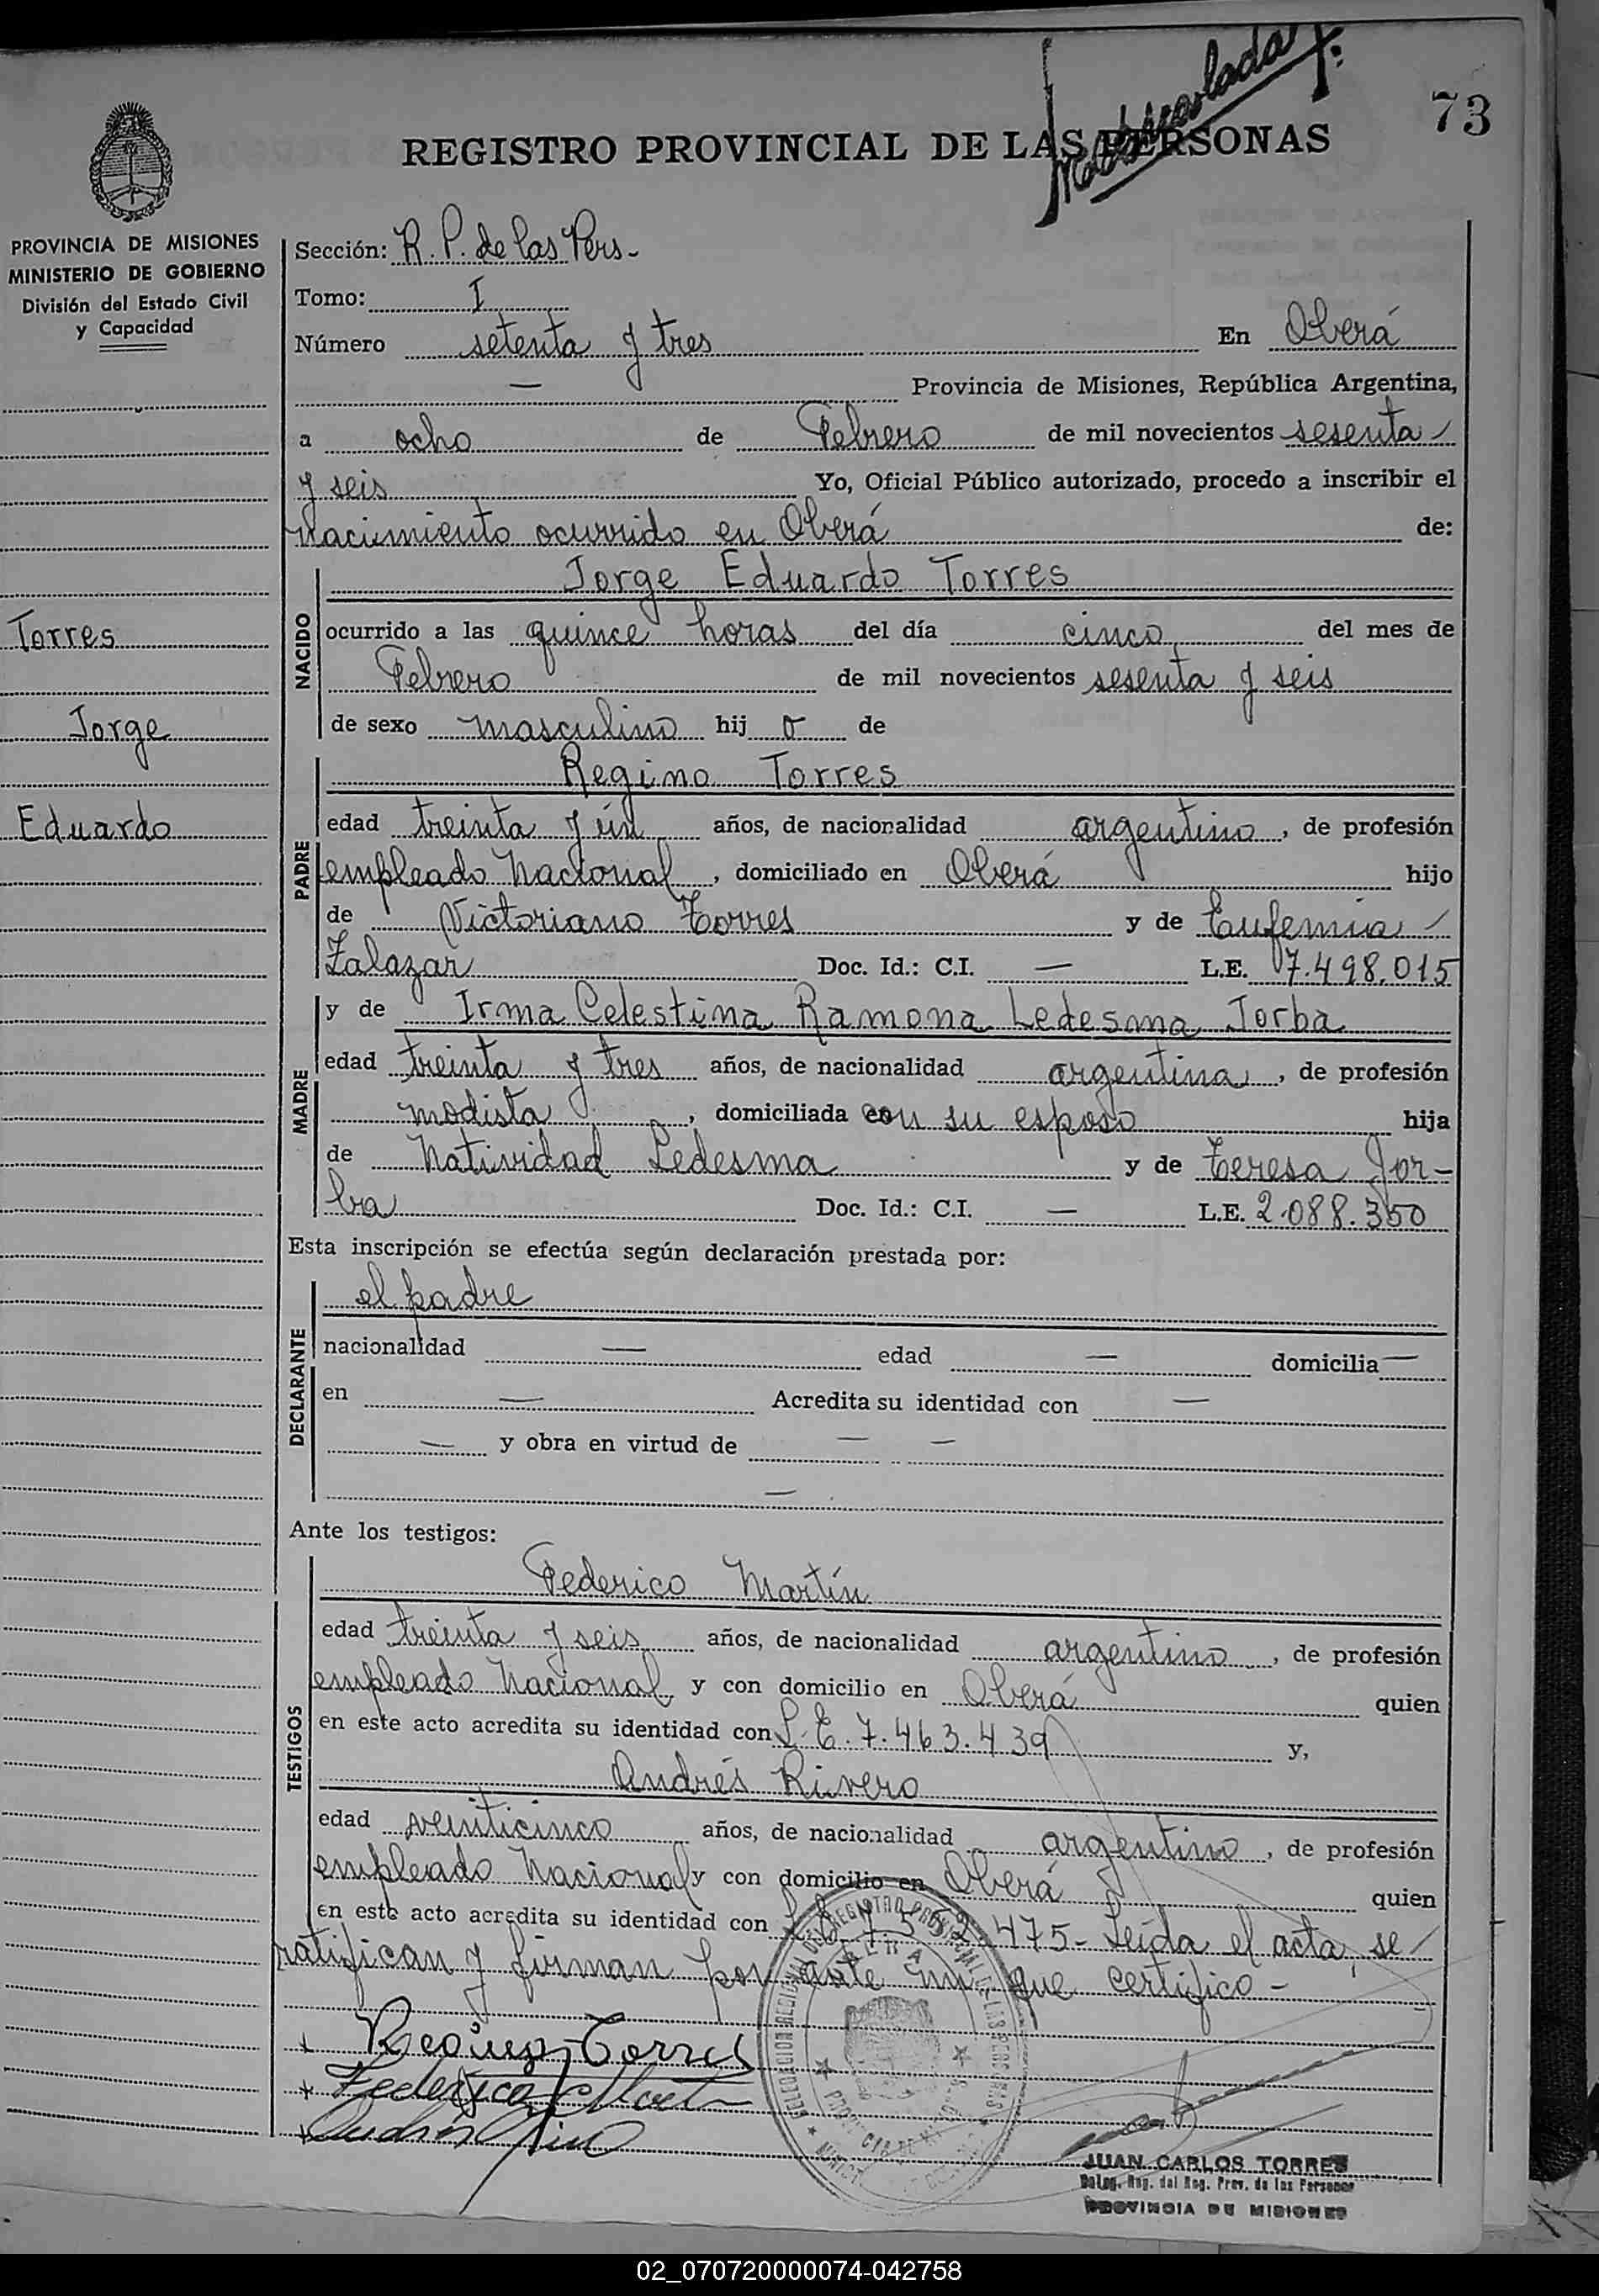 73
REGISTRO PROVINCIAL DE LAS PERSONAS
PROVINCIA DE MISIONES
MINISTERIO DE GOBIERNO
División del Estado Civil
y Capacidad
Torres
Jorge
Eduardo
Sección: R. P. de las Pers-
Tomo: I
Número setenta y tres En Oberá
— Provincia de Misiones, República Argentina,
a ocho de Febrero de mil novecientos sesenta
y seis Yo, Oficial Público autorizado, procedo a inscribir el
nacimiento ocurrido en Oberá de:
NACIDO
Jorge Eduardo Torres
ocurrido a las quince horas del día cinco del mes de
Febrero de mil novecientos sesenta y seis
de sexo masculino hij o de
PADRE
Regino Torres
edad treinta y ún años, de nacionalidad argentino, de profesión
empleado Nacional, domiciliado en Oberá hijo
de Victoriano Torres y de Eufemia
Zalazar Doc. Id.: C.I. — L.E. 7.498.015
MADRE
y de Irma Celestina Ramona Ledesma Jorba
edad treinta y tres años, de nacionalidad argentina, de profesión
modista, domiciliada con su esposo hija
de Natividad Ledesma y de Teresa Jor-
ba Doc. Id.: C.I. — L.E. 2.088.350
Esta inscripción se efectúa según declaración prestada por:
DECLARANTE
el padre
nacionalidad — edad — domicilia —
en — Acredita su identidad con —
— y obra en virtud de — —
—
Ante los testigos:
TESTIGOS
Federico Martín
edad treinta y seis años, de nacionalidad argentino, de profesión
empleado Nacional y con domicilio en Oberá quien
en este acto acredita su identidad con L.E. 7.463.439 y,
Andrés Rivero
edad veinticinco años, de nacionalidad argentino, de profesión
empleado Nacional y con domicilio en Oberá quien
en este acto acredita su identidad con 475- Leída el acta, se
ratifican y firman por ante mi que certifico -
Regino Torres
Federico Martín
JUAN CARLOS TORRES
Deleg. Reg. del Reg. Prov. de las Personas
PROVINCIA DE MISIONES
02_070720000074-042758